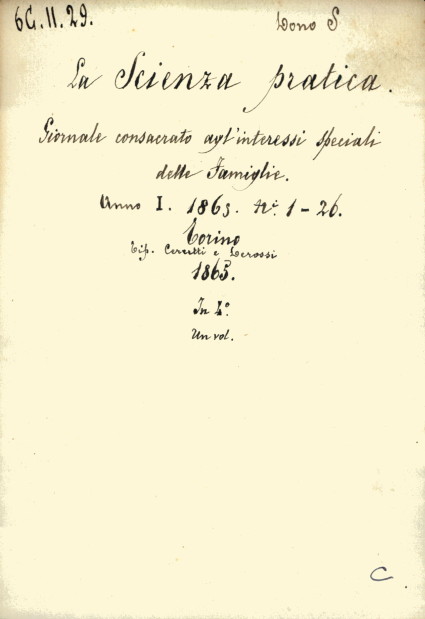 6G.11.29.
Dono S
La Scienza pratica.
Giornale consacrato agl'interessi speciali
delle Famiglie.
Anno I. 1865. Ni. 1-26.
Torino
Tip. Cerutti e Derossi
1865.
In 4º.
Un vol.
C